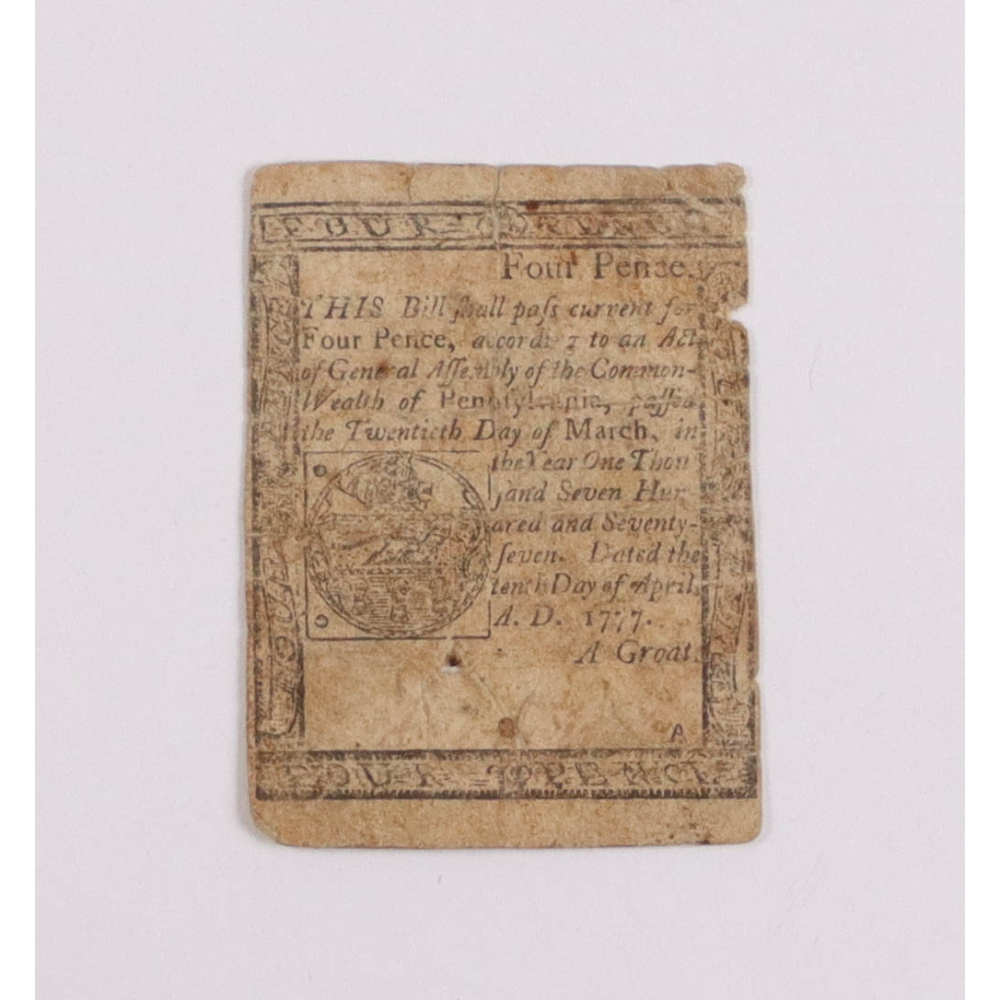 FOUR PENCE
Four Pence.
THIS Bill ſhall paſs current for
Four Pence, according to an Act
of General Aſſembly of the Common-
Wealth of Pennſylvania, paſſed
the Twentieth Day of March, in
the Year One Thou
ſand Seven Hun
dred and Seventy-
ſeven. Dated the
tenth Day of April,
A. D. 1777.
A Groat.
A
FOUR PENCE
FOUR